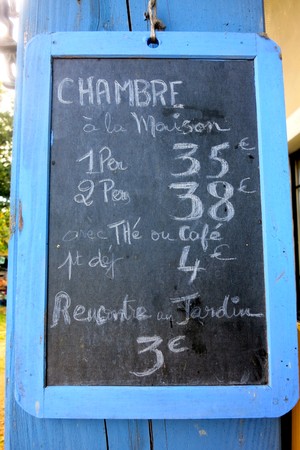 CHAMBRE
à la Maison
1 Per 35€
2 Per 38€
avec THé ou café
pt déj 4€
Rencontre au Jardin
3€